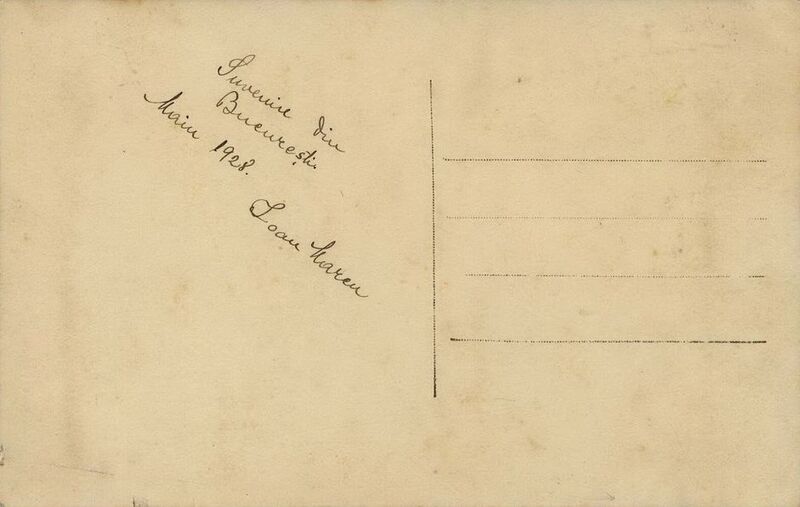 Suvenire din
București.
Maiu 1928.
Ioan Marcu